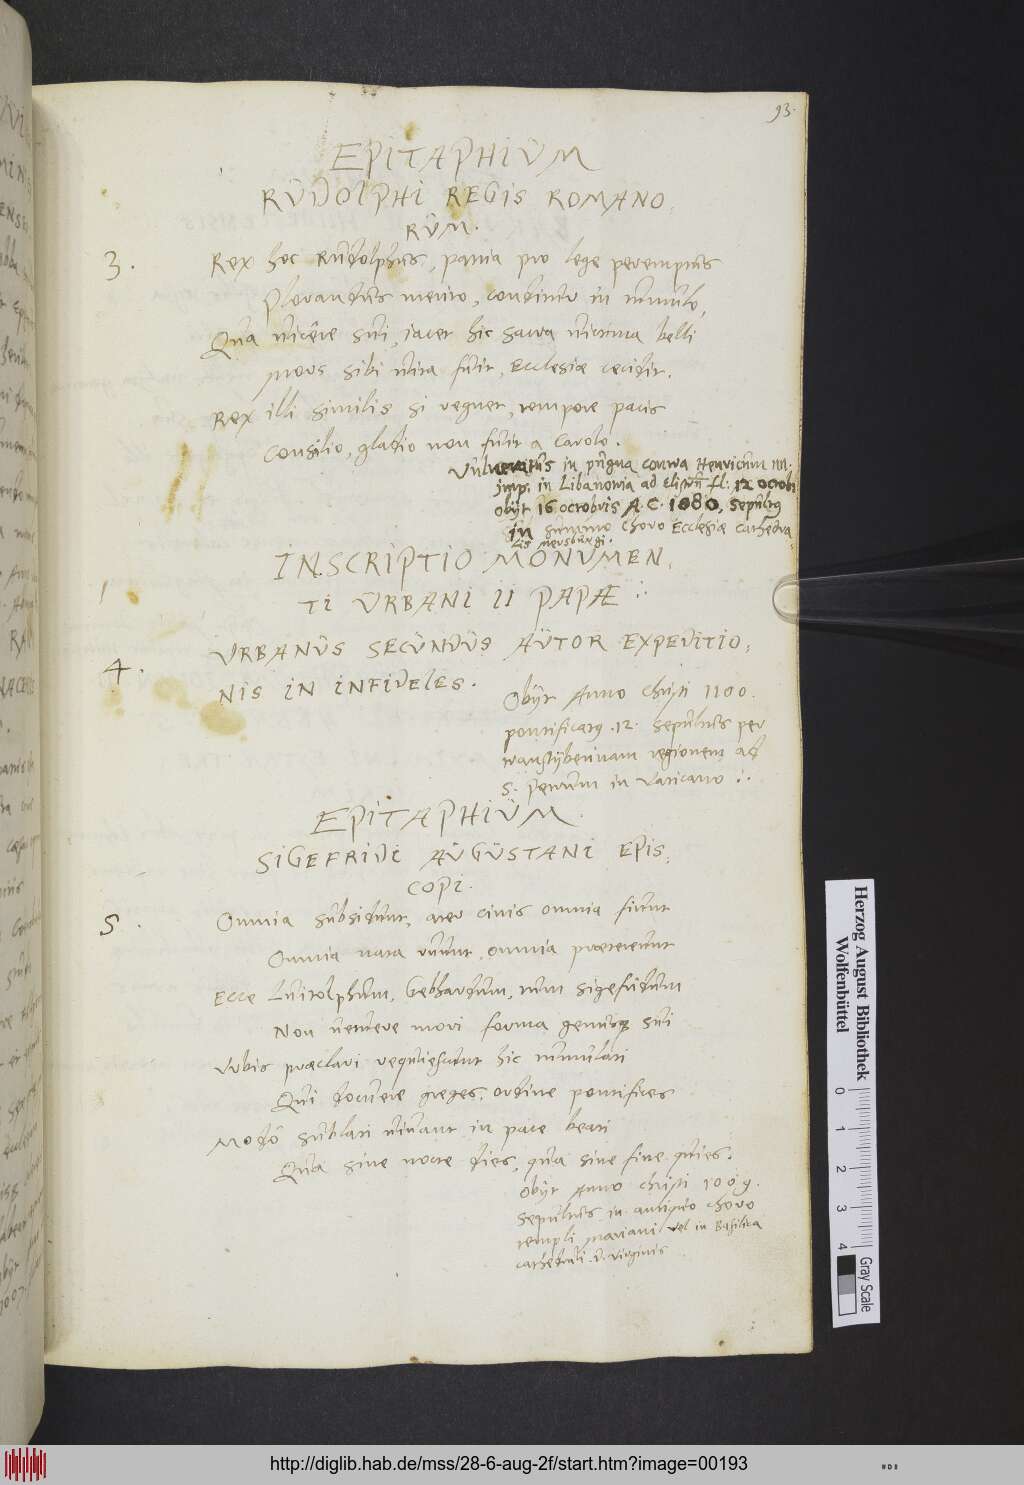 93.
EPITAPHIŬM
RŬDOLPHI REGIS ROMANO,
RŬM.
3. Rex hoc Rŭdolphŭs, patria pro lege peremptŭs
Plorandŭs merito, conditŭr in tŭmŭlo,
Qŭa vicêre sŭi, iacet hic sacra victima belli
Mors sibi vita fŭit, Ecclesiæ cecidit.
Rex illi similis si regnet, tempore pacis
Consilio, gladio non fŭit a Carolo.
Vŭlneratŭs in pŭgna contra Henricŭm IIII.
imp. in Libanonia ad fl: 12 octob:
obijt 16 octobris A. C. 1080, sepŭltg
in summo Choro Ecclesiæ Cathedra,
lis Mersbŭrgi.
INSCRIPTIO MONŬMEN,
TI ŬRBANI II PAPÆ
4. ŬRBANŬS SECŬNDŬS AŬTOR EXPEDITIO,
NIS IN INFIDELES.
Obijt Anno Christi 1100.
pontificatg .12. Sepŭltŭs per
transtijberinam regionem ad
S. Petrum in Vaticano
EPITAPHIŬM
SIGEFRIDI AŬGŬSTANI EPIS,
COPI.
5. Omnia sŭbsidŭnt, ater cinis omnia fiŭnt
Omnia nata rŭŭnt, omnia prætereŭnt
Ecce Lŭitolphŭm, Gebhardŭm, tŭm Sigefridŭm
Non vetŭere mori forma genŭsq sŭi
Vrbis præclari reqŭiescŭnt hic tŭmŭlati
Qŭi docŭere greges, ordine pontifices
Modo sŭblati vivant in pace beati
Qŭa sine nocte dies, qŭa sine fine qŭies.
Obijt Anno Christi
Sepŭltŭs in antiqŭo choro
templi Mariani vel in Basilica
cathedrali D. Virginis
Herzog August Bibliothek
Wolfenbüttel
0 1 2 3 4
Gray Scale
http://diglib.hab.de/mss/28-6-aug-2f/start.htm?image=00193